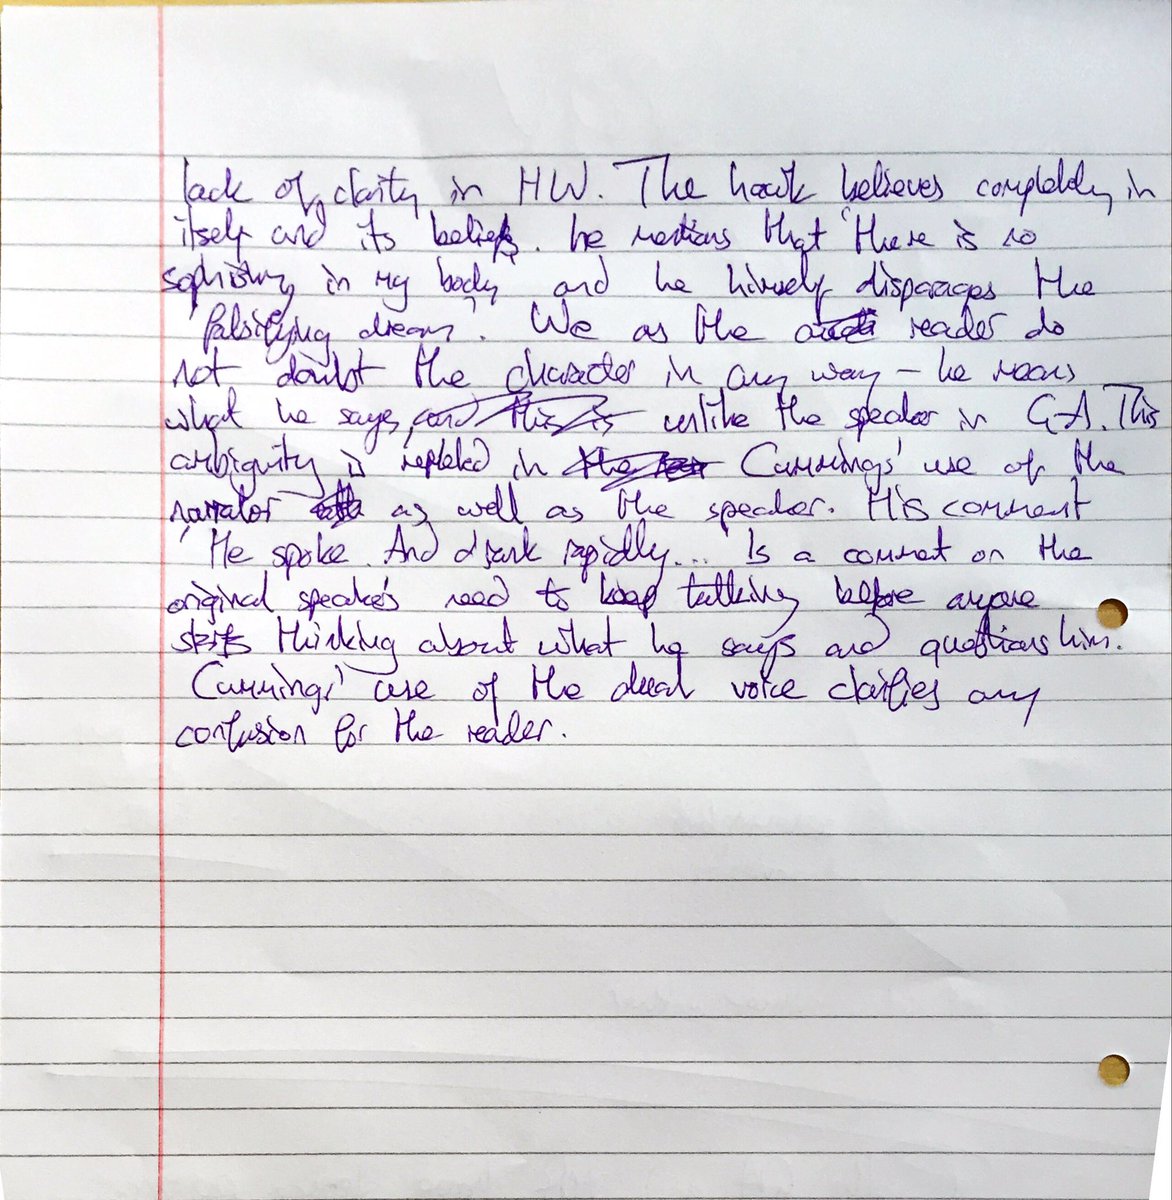 lack of clarity in HW. The hawk believes completely in
itself and its beliefs. he mentions that 'there is no
sophistry in my body' and he himself disparages the
'falsifying dream'. We as the reader do
not doubt the character in any way – he means
what he says, unlike the speaker in GA. This
ambiguity is replaced in Cummings' use of the
narrator as well as the speaker. His comment
'He spoke. And drank rapidly....' Is a comment on the
original speaker's need to keep talking before anyone
thinking about what he says and questions him.
Cummings' use of the dual voice clarifies any
confusion for the reader.